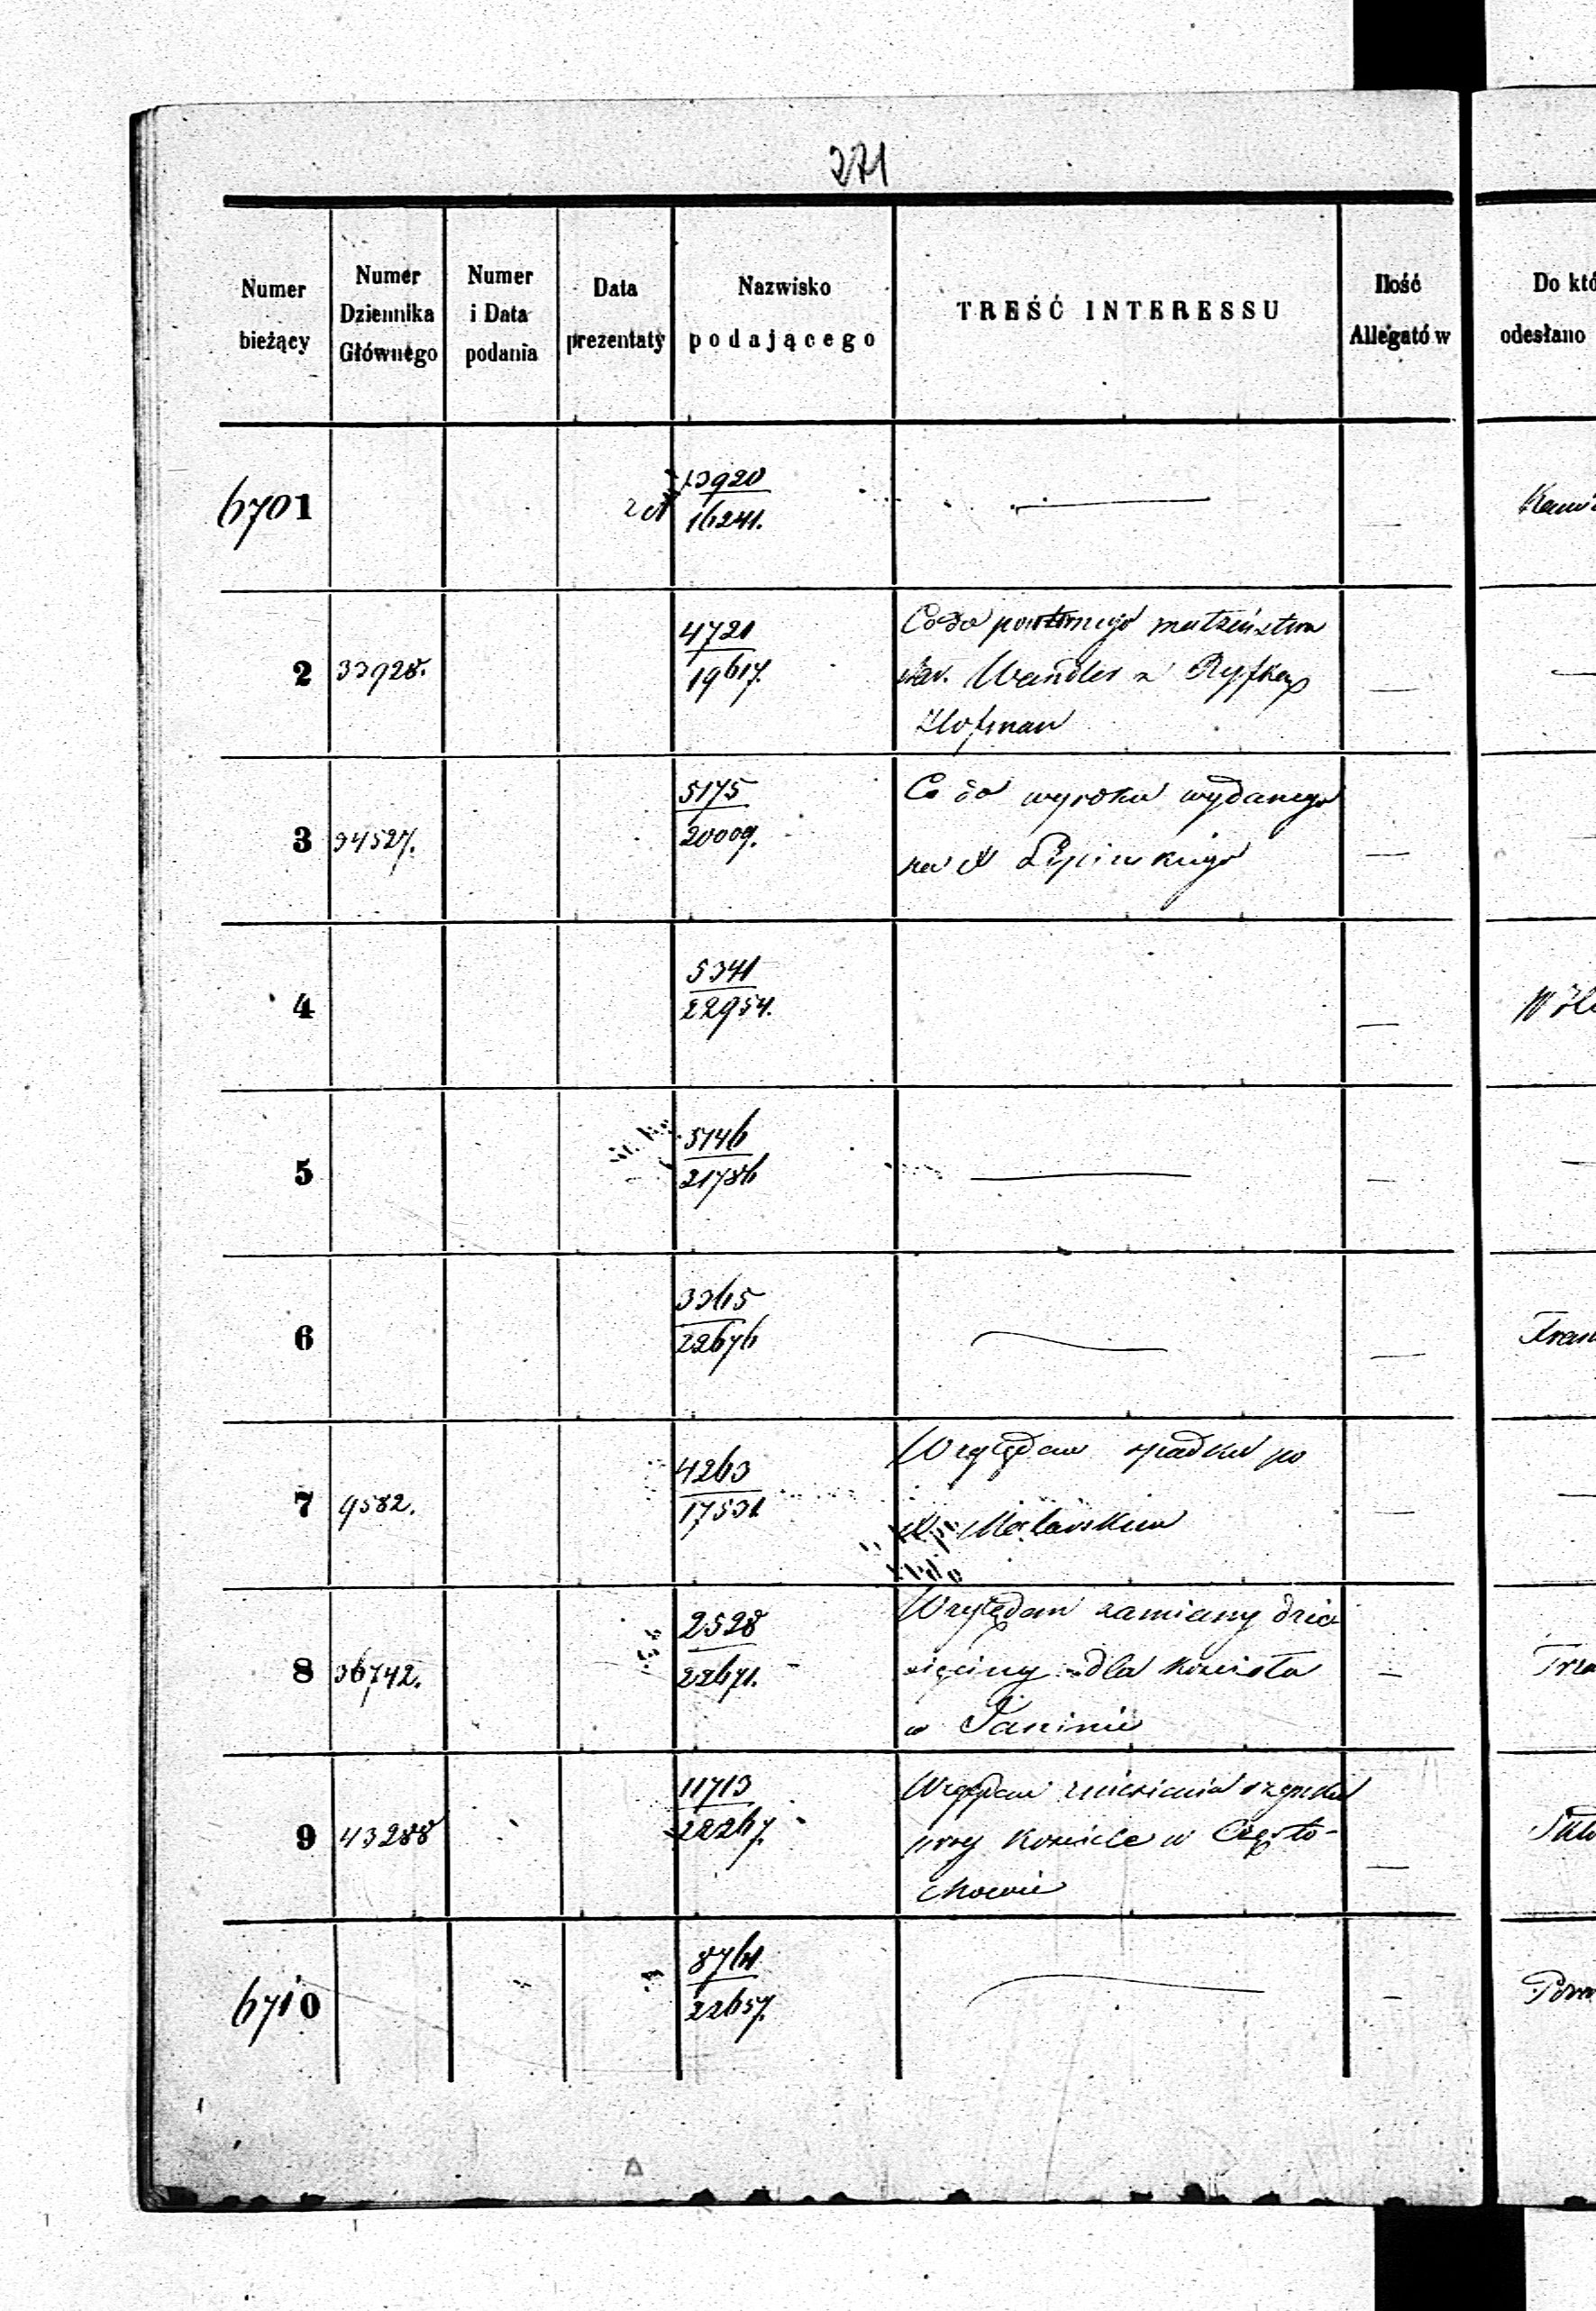 271
Numer bieżący
Numer Dziennika Głównego
Numer i Data podania
Data prezentaty
Nazwisko podającego
TREŚĆ INTERESSU
Ilość Allegatów
Do któ
odesłano
6701
13920
16241.
2 33928.
4721
19617.
Co do powtórnego małżeństwa
Wandler z Ryfką
Hofman
3 34527.
5175
20009.
Co do wyroku wydanego
na X Lipińskiego
4
5341
22954.
5
5746
21786
6
3365
22676
7 9582.
4263
17531
Względem spadku po
X.
8 36742.
2528
22671.
Względem zamiany dzie
sięciny dla kościoła
w Janinie
9 43288
11713
22267.
Względem zniesienia szynku
przy kościele w Często-
chowie
6710
8761
22657.